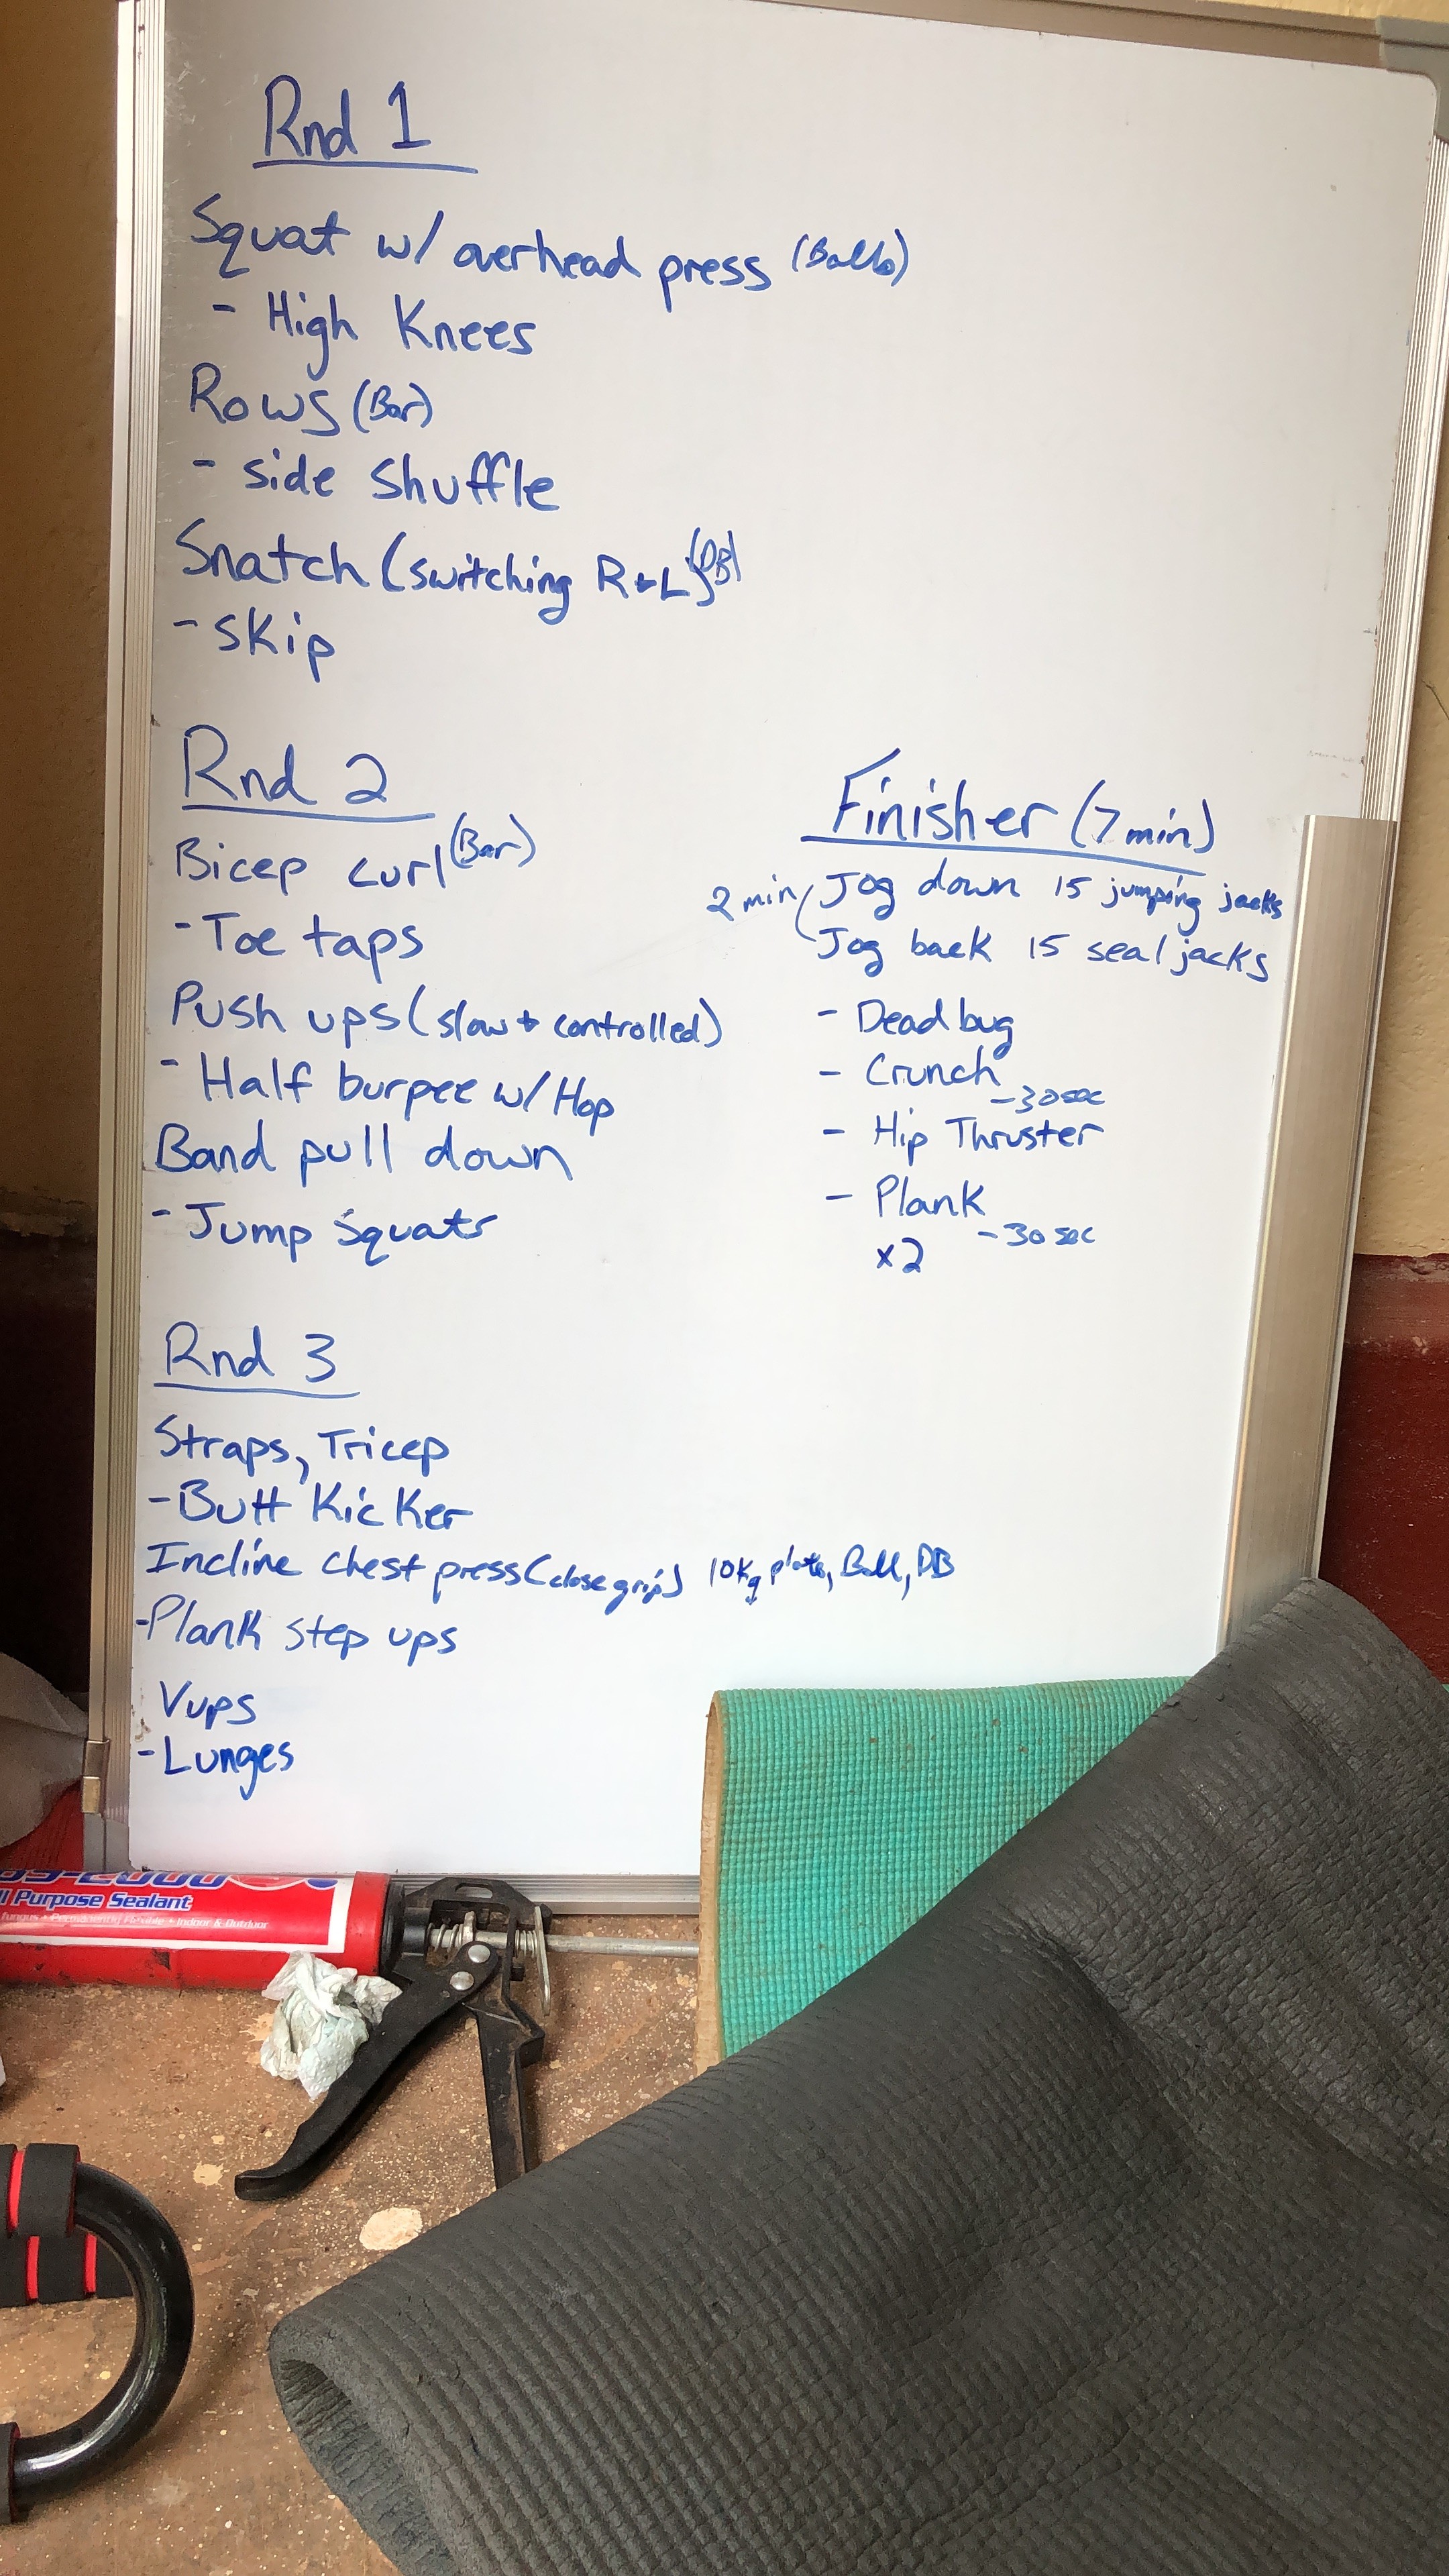 Rnd 1
Squat w/ overhead press (Balls)
- High Knees
Rows (Bar)
- side shuffle
Snatch (switching R+L) (DB)
- skip
Rnd 2
Bicep curl (Bar)
- Toe taps
Push ups (slow + controlled)
- Half burpee w/ Hop
Band pull down
- Jump squats
Rnd 3
Straps, Tricep
- Butt Kicker
Incline chest press (close grip) 10Kg plate, Ball, DB
- Plank step ups
Vups
- Lunges
Finisher (7 min)
2 min
Jog down 15 jumping jacks
Jog back 15 seal jacks
- Dead bug
- Crunch
- 30 sec
- Hip Thruster
- Plank
- 30 sec
x2
Purpose Sealant
Indoor & Outdoor